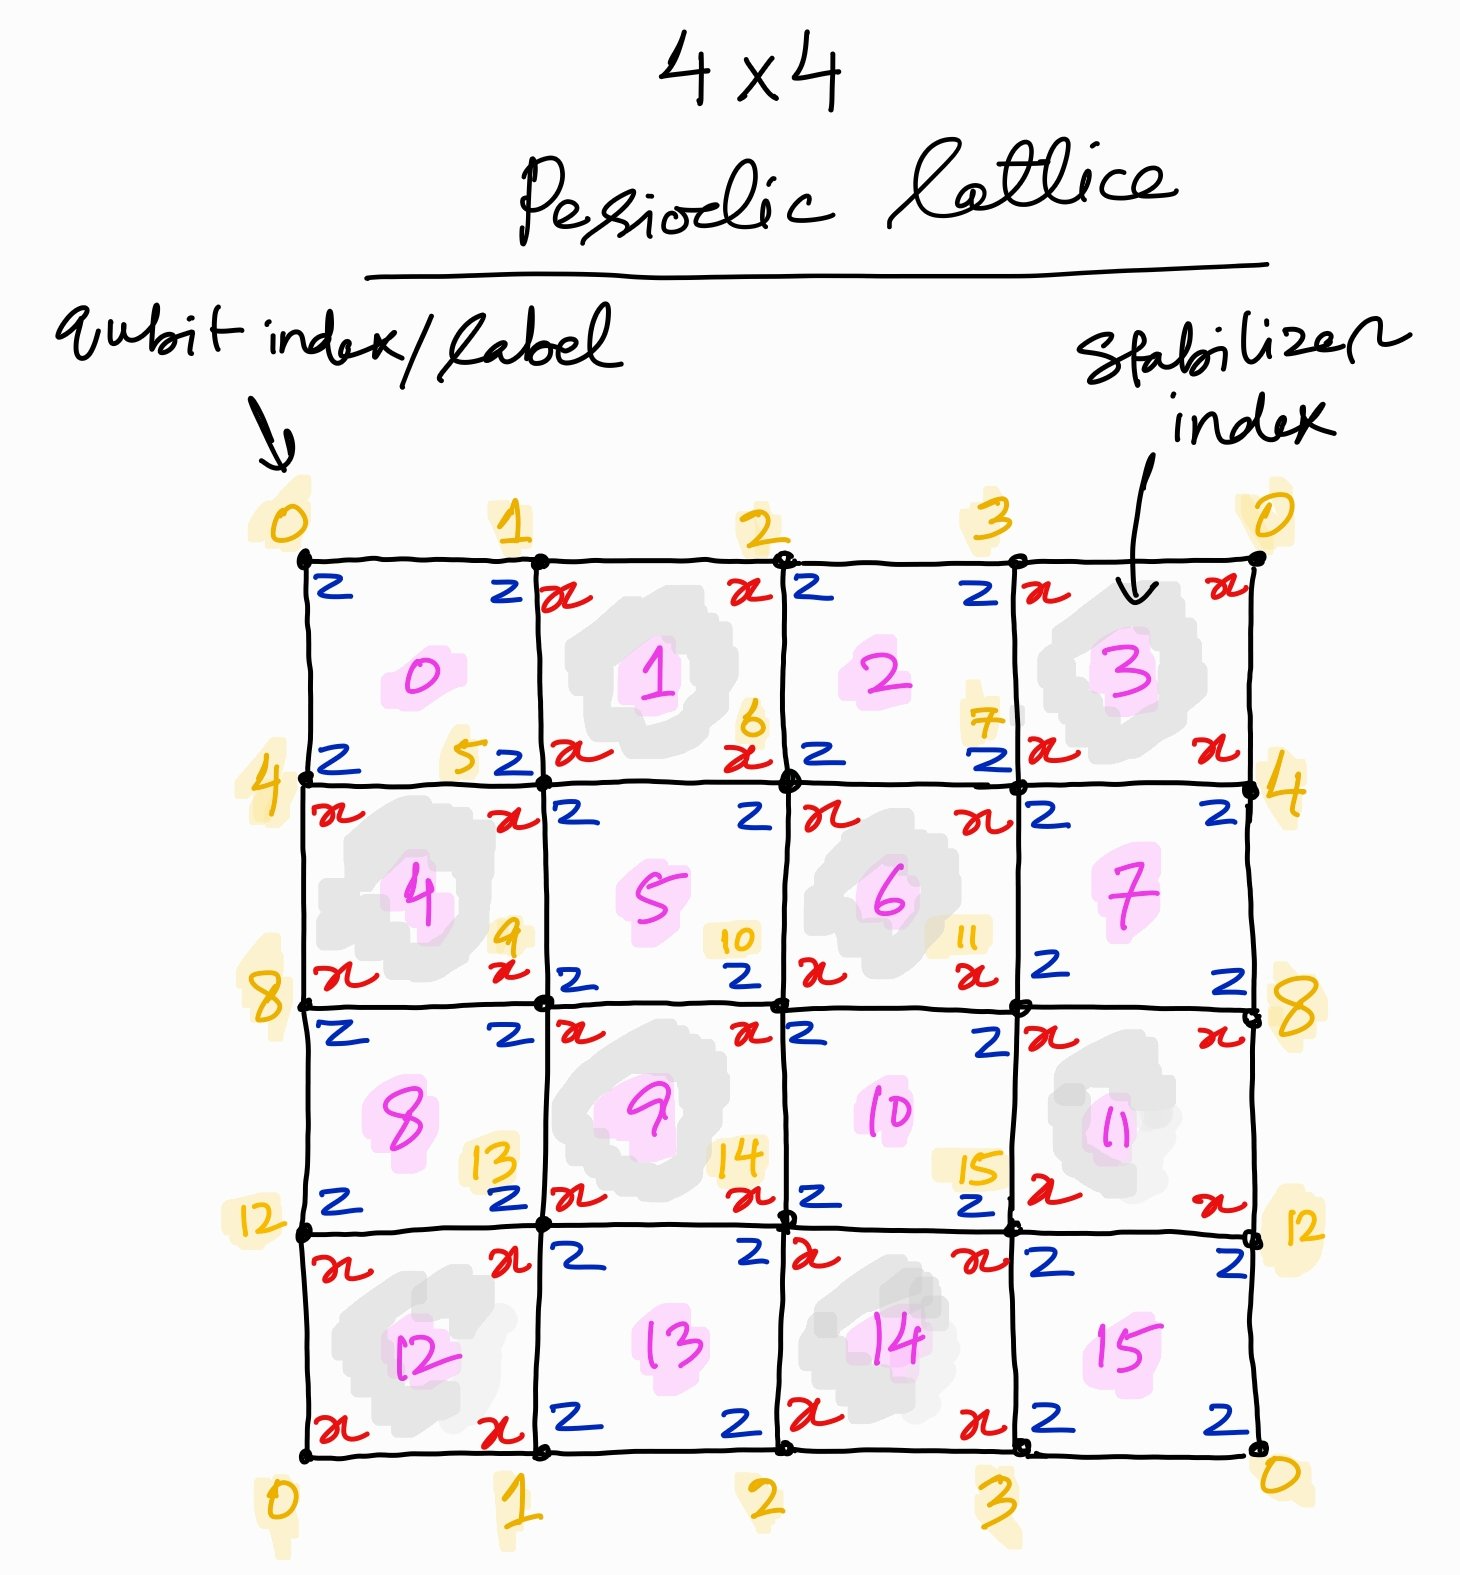 4 x 4
Periodic lattice
qubit index/label
stabilizer
index
0 1 2 3 0
z z x x z z x x
0 1 2 3
6 7
z 5 z x x z z x x
4 4
x x z z x x z z
4 5 6 7
9 10 11
x x z z x x z z
8 8
z z x x z z x x
8 9 10 11
13 14 15
z z x x z z x x
12 12
x x z z x x z z
12 13 14 15
x x z z x x z z
0 1 2 3 0